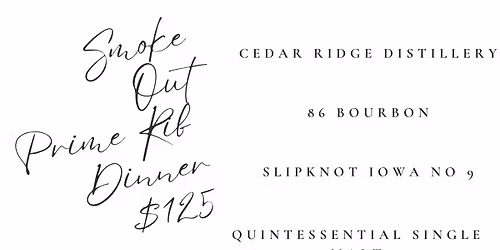 Smoke
Out
Prime Rib
Dinner
$125
CEDAR RIDGE DISTILLERY
86 BOURBON
SLIPKNOT IOWA NO 9
QUINTESSENTIAL SINGLE